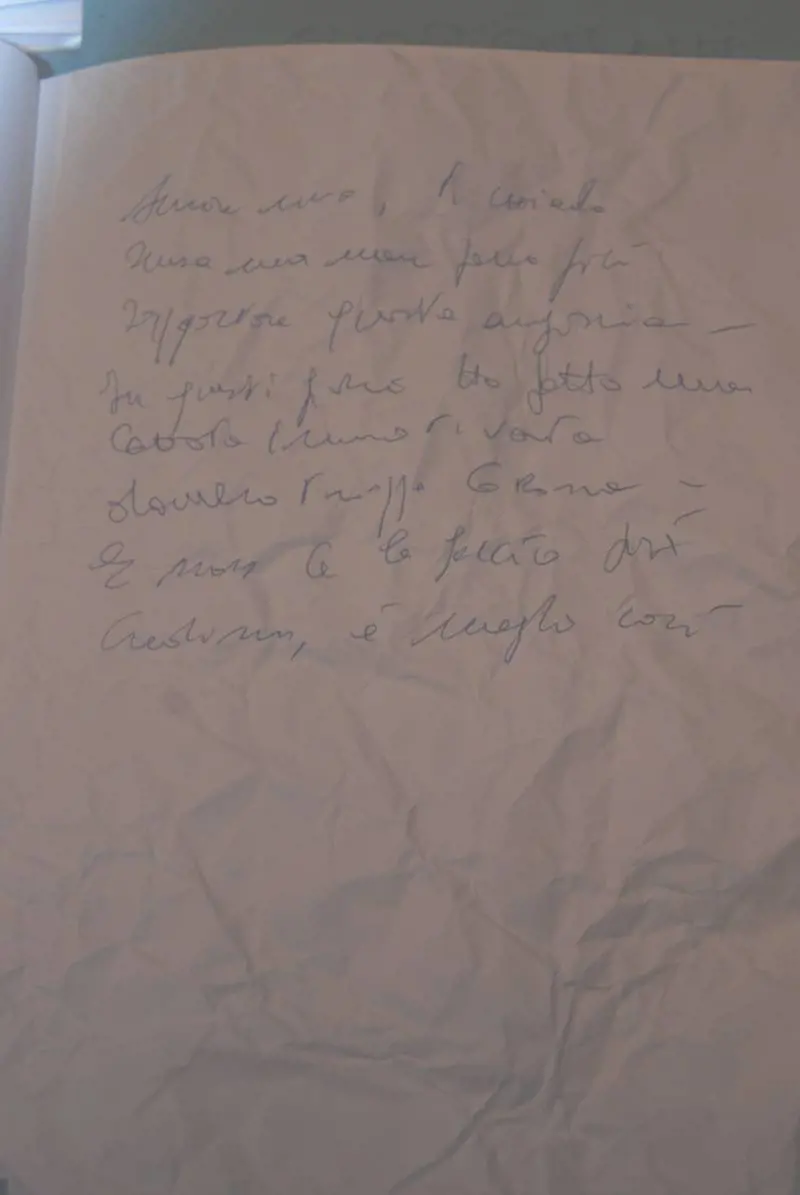 Amore mio, ti chiedo
scusa ma non posso più
sopportare questa angoscia –
In questi giorni ho fatto una
cavolata questa volta
davvero troppo grossa –
E non ce la faccio più
Credimi, è meglio così